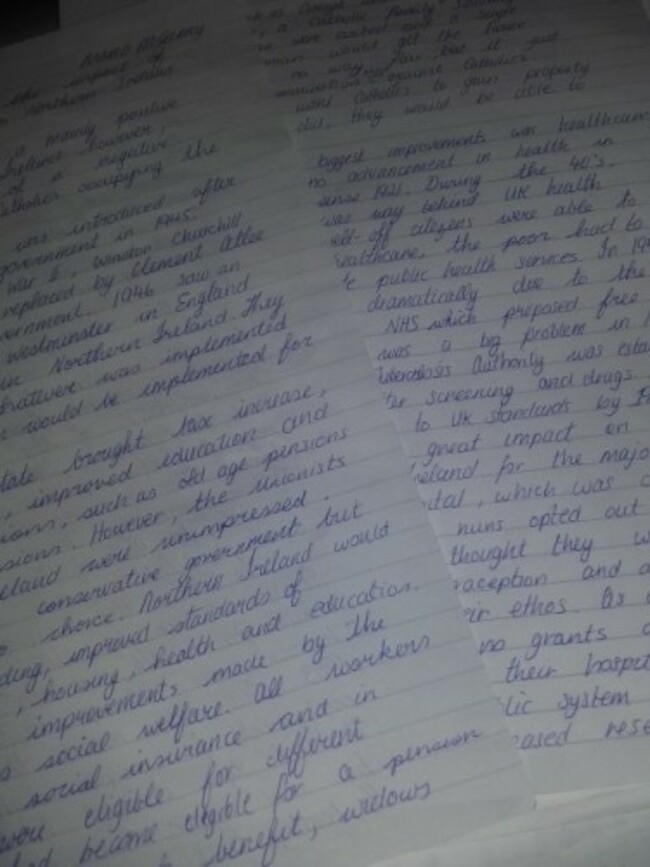 impact of
Northern Ireland
a mainly positive
Ireland however,
of a negative
Catholics occupying the
was introduced after
government in 1945.
War II, Winston Churchill
replaced by Clement Atlee
vernment. 1946 saw an
Westminster in England
in Northern Ireland. They
whatever was implemented
would be implemented for
tate brought tax increase,
, improved education and
ions, such as old age pensions
sions. However, the unionists
reland were unimpressed.
conservative government but
choice. Northern Ireland would
ding, improved standards of
, housing, health and education.
improvements made by the
social welfare. All workers
social insurance and in
were eligible for different
became eligible for a pension
benefit, widows
a Catholic family
and a single
would get the house
no way fair but it just
against Catholics.
want Catholics to gain property
did, they would be able to
biggest improvements was healthcare
no advancement in health in
since 1921. During the 40's.
was way behind UK health
well-off citizens were able to
healthcare, the poor had to
public health services. In 19
dramatically due to the
NHS which proposed free
was a big problem in
Tuberculosis Authority was esta
screening and drugs.
to UK standards by 19
great impact on
reland for the major
ital, which was
nuns opted out
thought they w
raception and a
ir ethos. As
no grants
their hospit
lic system
eased rese